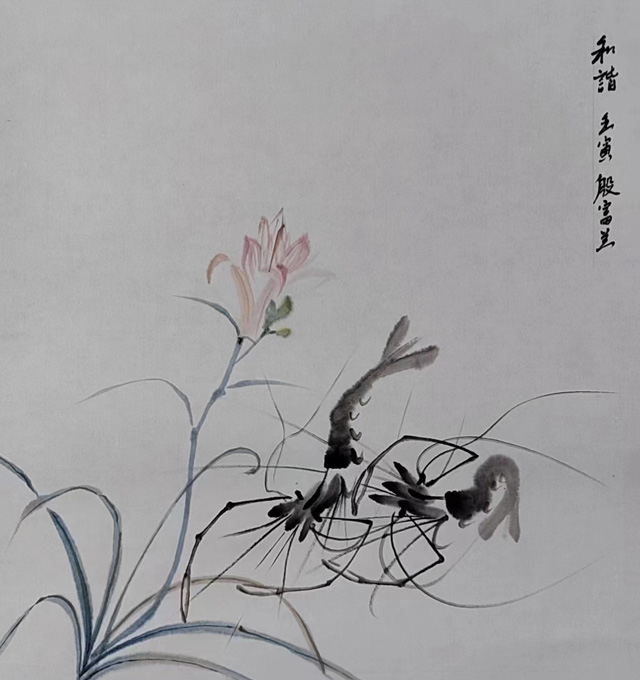 和諧 壬寅 殷富兰